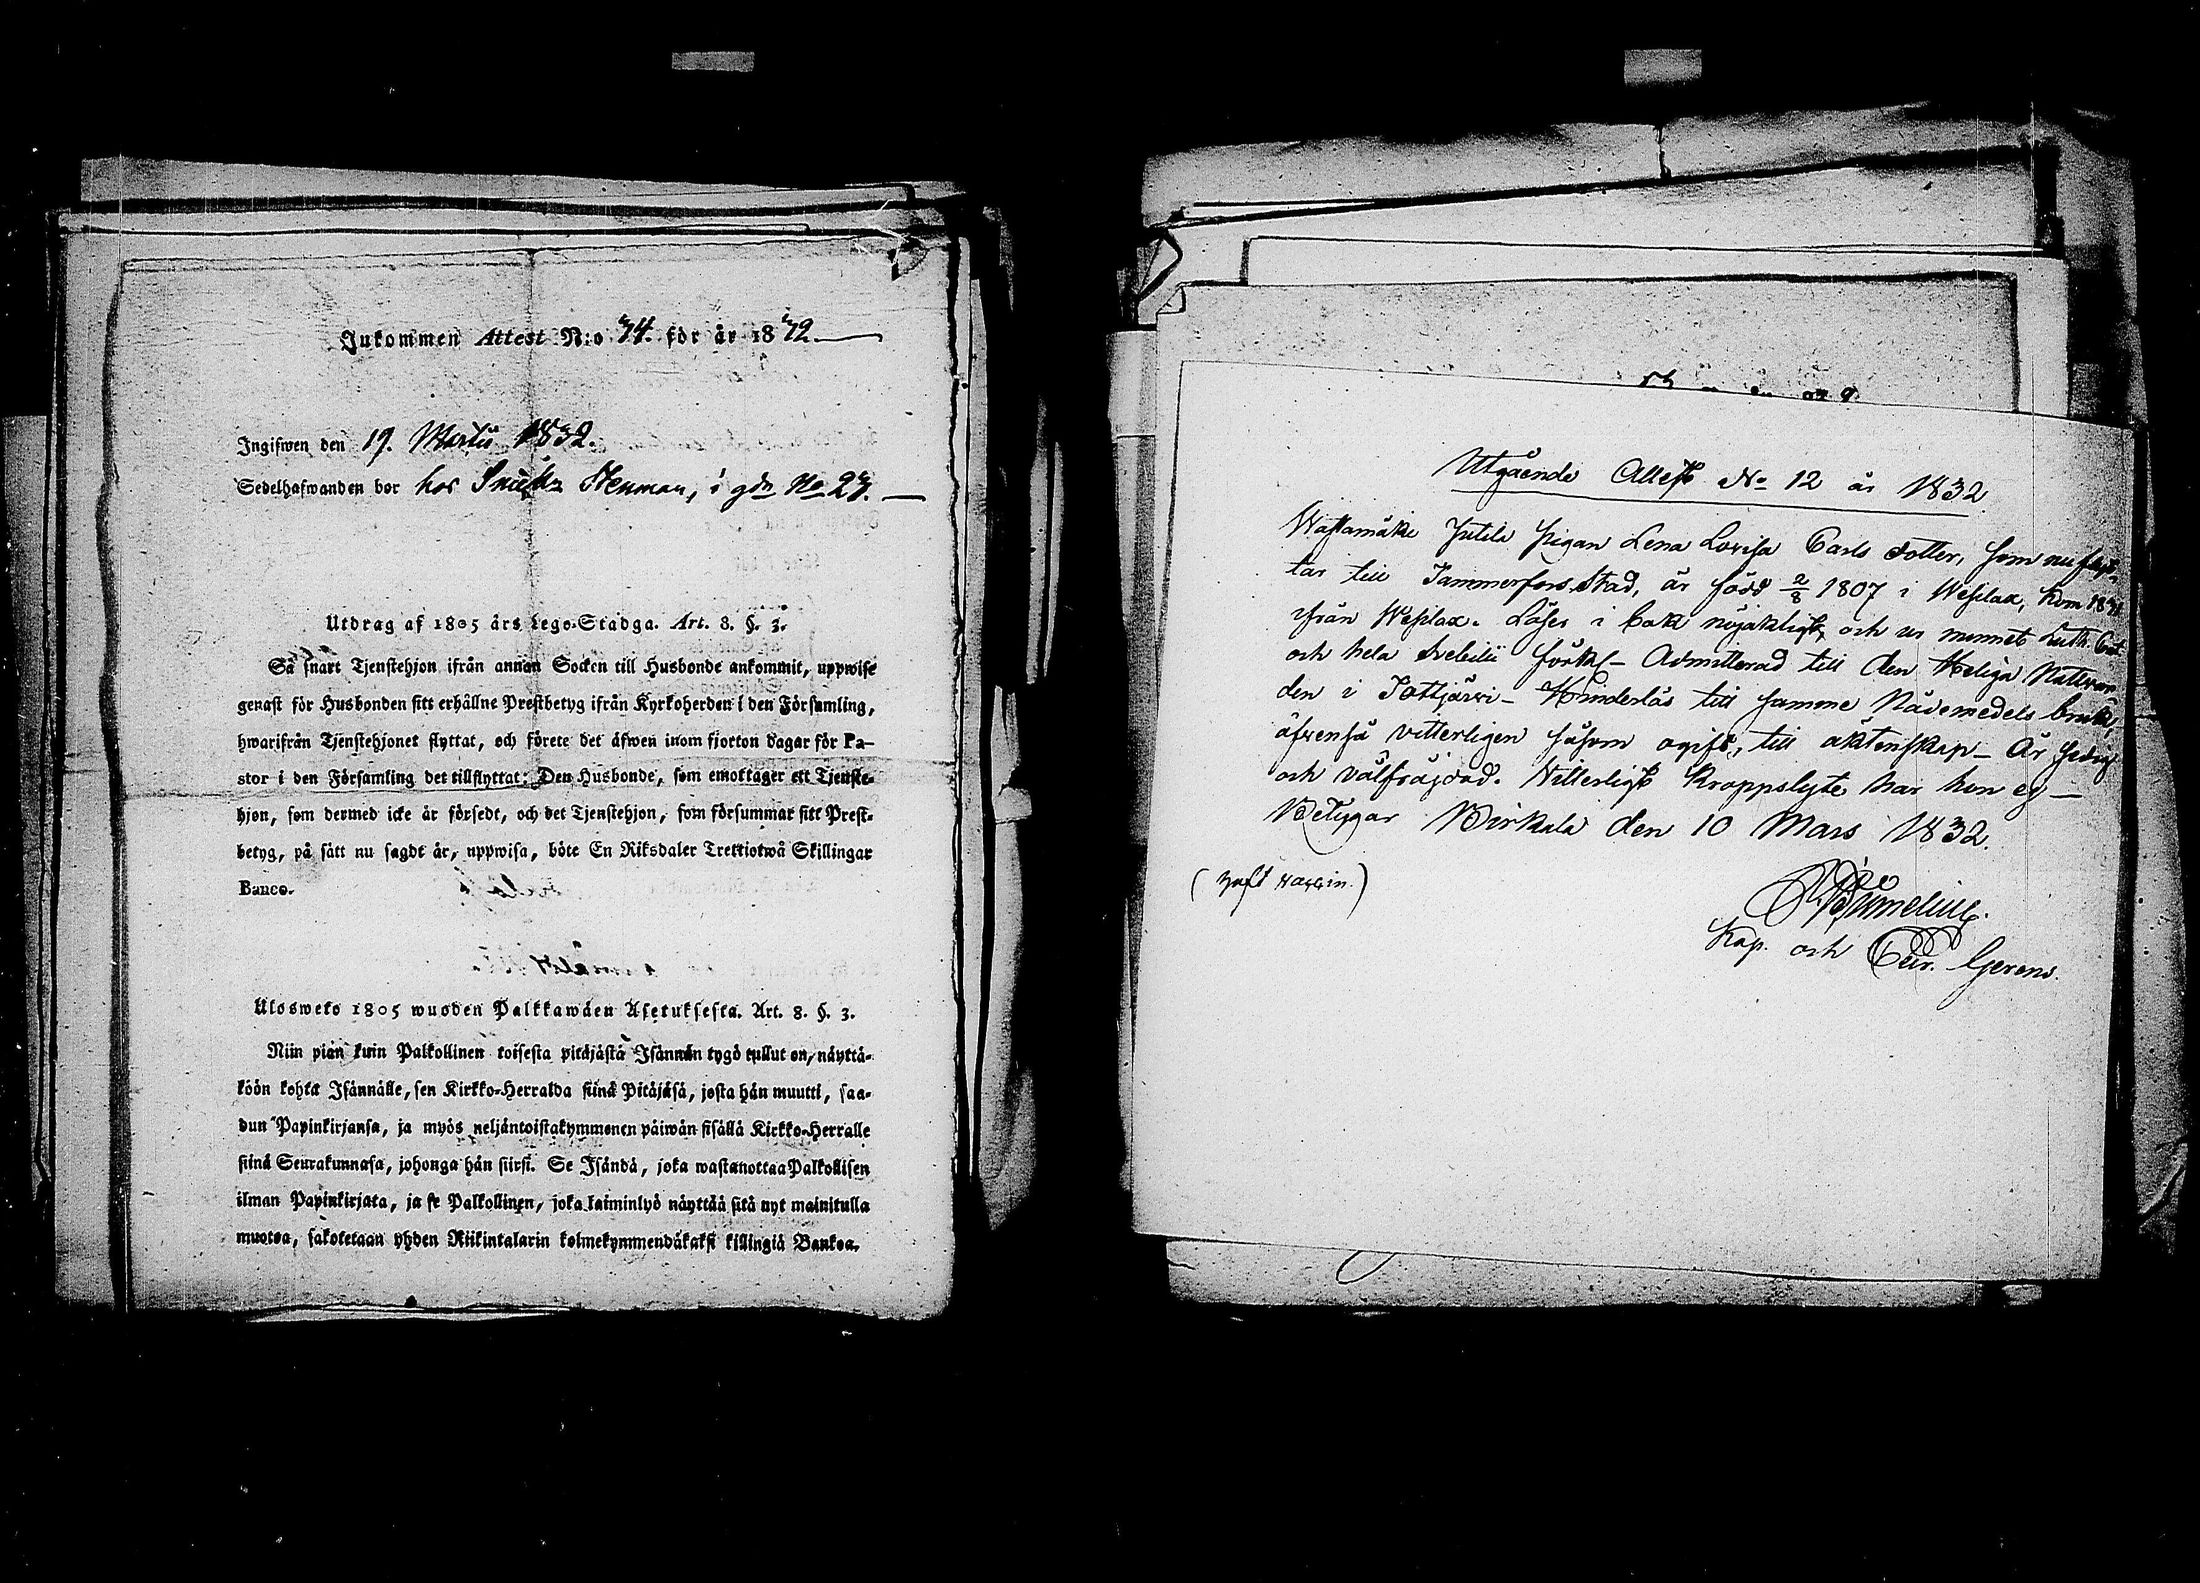 Inkommen Attest N:o 74. för år 1832.
Ingifwen den 19. Martii 1832.
Sedelhafwanden bor hos Snick: Stenman, i gdn No 27.
Utdrag af 1805 års Lego-Stadga. Art. 8. §. 3.
Så snart Tjenstehjon ifrån annan Socken till Husbonde ankommit, uppwise
genast för Husbonden sitt erhållne Prestbetyg ifrån Kyrkoherden i den Församling,
hwarifrån Tjenstehjonet flyttat, och förete det äfwen inom fjorton dagar för Pa-
stor i den Församling det tillflyttat: Den Husbonde, som emottager ett Tjenste-
hjon, som dermed icke är försedt, och det Tjenstehjon, som försummar sitt Prest-
betyg, på sätt nu sagdt är, uppwisa, böte En Riksdaler Trettiotwå Skillingar
Banco.
Ulosweto 1805 wuoden Palkkawäen Asetuksesta. Art. 8. §. 3.
Niin pian kuin Palkollinen toisesta pitäjästä Isännän tygö tullut on, näyttä-
köön kohta Isännälle, sen Kirkko-Herralda siinä Pitäjäsä, josta hän muutti, saa-
dun Papinkirjansa, ja myös neljäntoistakymmenen päiwän sisällä Kirkko-Herralle
siinä Seurakunnasa, johonga hän siirsi. Se Isändä, joka wastanottaa Palkollisen
ilman Papinkirjata, ja se Palkollinen, joka laiminlyö näyttää sitä nyt mainitulla
muotoa, sakotetaan yhden Riikintalarin kolmekymmendäkaksi killingiä Bankoa.
Utgående Attest No 12 år 1832
Wastamäki Jutila pigan Lena Lovisa Carls dotter, som nu flyt-
tar till Tammerfors Stad, är född 2/8 1807 i Wesilax, kom 1831
ifrån Wesilax. Läser i bok nöjaktligt, och ur minnet Luth. Cat.
och hela Svebilii förkl– Admitterad till den Heliga Nattvar-
den i Tottjärvi– Hinderlös till samme Nådemedels bruk,
äfvenså vitterligen såsom ogift, till äktenskap– Är frdig
och välfräjdad. Vitterligt kroppslyte har hon ej—
Betygar Birkala den 10 Mars 1832.
(haft vaccin.)
Kap. och Cur. Gerens.